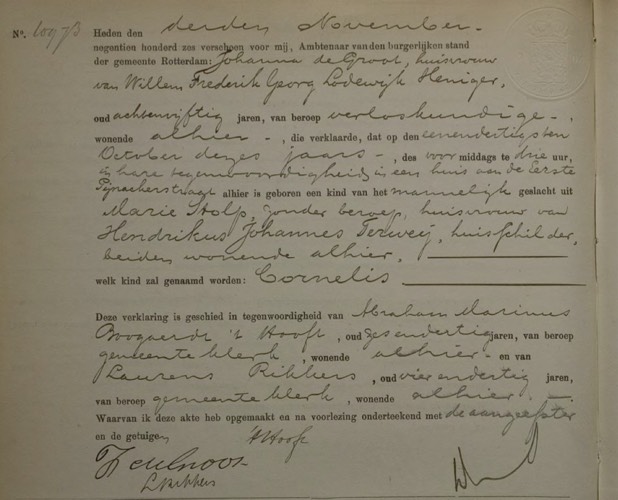 No. 10973 Heden den derden November
negentien honderd zes verscheen voor mij, Ambtenaar van den burgerlijken stand
der gemeente Rotterdam: Johanna de Groot, huisvrouw
van Willem Frederik Georg Lodewijk Heniger,
oud achtenvijftig jaren, van beroep verloskundige,
wonende alhier, die verklaarde, dat op den eenendertigsten
October dezes jaars, des voormiddags te drie uur,
in hare tegenwoordigheid, in een huis aan de Eerste
Pijnackerstraat alhier is geboren een kind van het mannelijk geslacht uit
Marie Stolp, zonder beroep, huisvrouw van
Hendrikus Johannes Terweij, huisschilder,
beiden wonende alhier,
welk kind zal genaamd worden: Cornelis
Deze verklaring is geschied in tegenwoordigheid van Abraham Marinus
Boogaerdt 't Hooft, oud zesendertig jaren, van beroep
gemeenteklerk, wonende alhier en van
Laurens Rikkers, oud vierendertig jaren,
van beroep gemeenteklerk, wonende alhier.
Waarvan ik deze akte heb opgemaakt en na voorlezing onderteekend met de aangeefster
en de getuigen
't Hooft
L Rikkers